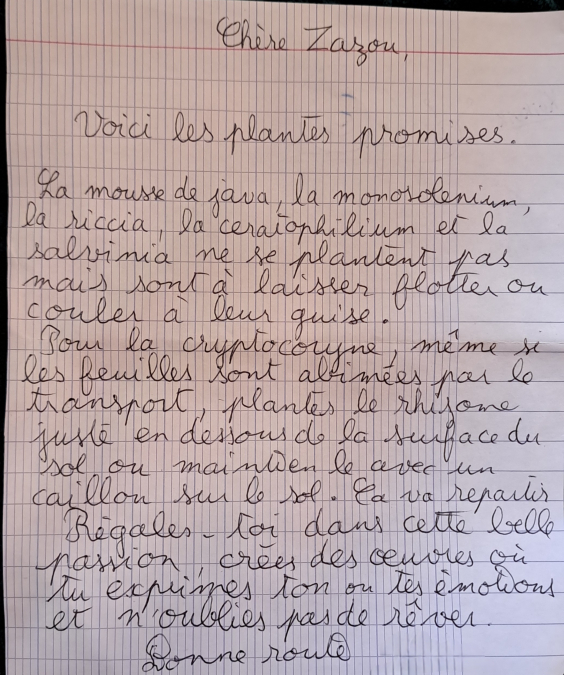 Chère Zazou,
Voici les plantes promises.
La mousse de java, la monosolenium,
la riccia, la ceratophilium et la
salvinia ne se plantent pas
mais sont à laisser flotter ou
couler à leur guise.
Pour la cryptocoryne, même si
les feuilles sont abimées par le
transport, plantes le rhisome
juste en dessous de la surface du
sol ou maintien le avec un
caillou sur le sol. Ca va repartir
Régales-toi dans cette belle
passion, crées des œuvres où
tu exprimes ton ou tes émotions
et n'oublies pas de rêver.
Bonne route